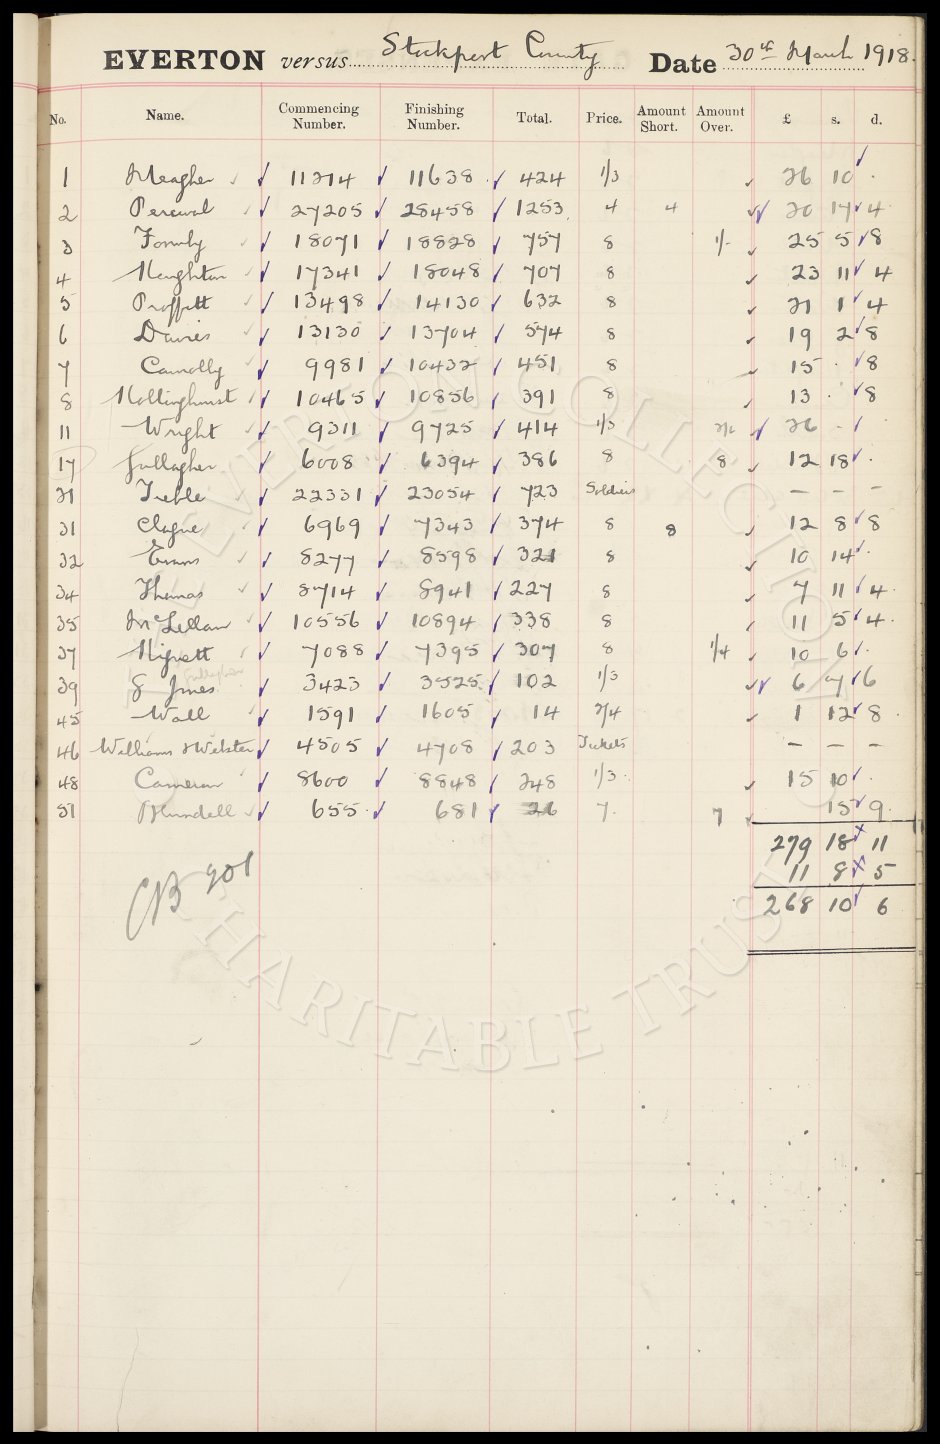 EVERTON versus Stockport County Date 30th March 1918.
No. Name. Commencing Number. Finishing Number. Total. Price. Amount Short. Amount Over. £ s. d.
1 Meagher 11214 11638 424 1/3 26 10 .
2 Percival 27205 28458 1253 4 4 20 17 4
3 Formby 18071 18828 757 8 1/- 25 5 8
4 Houghton 17341 18048 707 8 23 11 4
5 Proffitt 13498 14130 632 8 21 1 4
6 Davies 13130 13704 574 8 19 2 8
7 Connolly 9981 10432 451 8 15 . 8
8 Hollinghurst 10465 10856 391 8 13 . 8
11 Wright 9311 9725 414 1/3 2/6 26 - .
17 Gallagher 6008 6394 386 8 8 12 18 .
21 Treble 22331 23054 723 Soldiers — — —
31 Clague 6969 7343 374 8 8 12 8 8
32 Evans 8277 8598 321 8 10 14 .
34 Thomas 8714 8941 227 8 7 11 4
35 McLellan 10556 10894 338 8 11 5 4
37 Hignett 7088 7395 307 8 1/4 10 6 .
Gallagher
39 G Jones 3423 3525 102 1/3 6 7 6
45 Wall 1591 1605 14 2/4 1 12 8
46 Williams & Webster 4505 4708 203 Tickets — — —
48 Cameron 8600 8848 248 1/3 15 10 .
51 Blundell 655 681 26 7 7 15 9
279 18 11
11 8 5
268 10 6
CB 901
EVERTON COLLECTION
CHARITABLE TRUST